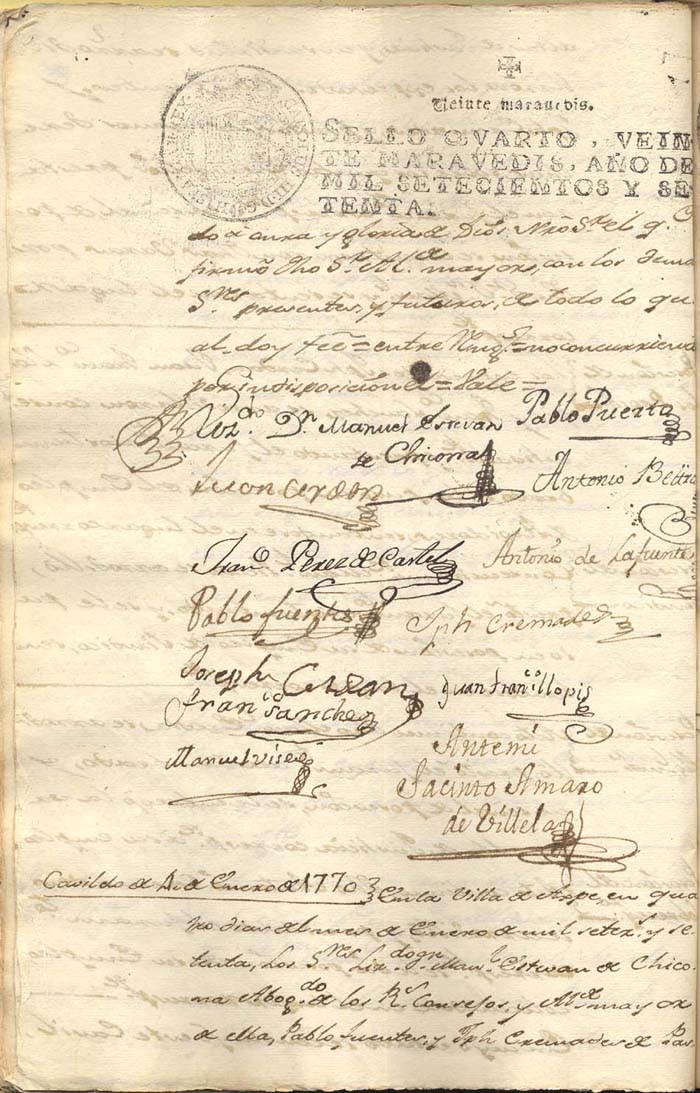 Veinte maravedis.
SELLO QVARTO, VEIN
TE MARAVEDIS, AÑO DE
MIL SETECIENTOS Y SE
TENTA.
y gloria de Dios Nrō Sr. el q.
firmó dho Sr. Al.de mayor, con los dema
S.res presentes, y futuros, de todo lo qu
al doy feé = entre = no concurriero
por indisposicion = Vale =
Liz.do Dn. Manuel Estevan
de Chicona
Pablo Puerto
Juan Cerdan
Antonio Beltra
Fran.co Perez de Castel
Antonio de Lafuente
Pablo fuentes
Jph Cremades
Joseph Cerdan
Fran.co Sanchez
Juan Fran.co llopis
Manuel
Antemi
Jacinto Amaro
de Villela
Cavildo de 4 de Enero de 1770
En la Villa de Aspe, en qua
tro dias del mes de Enero de mil setez.s y se
tenta, Los S.res Liz.do Dn. Man.l Estevan de Chico
na Abog.do de los R.s Consejos, y Al.de mayor
de ella, Pablo fuentes, y Jph Cremades de Pas